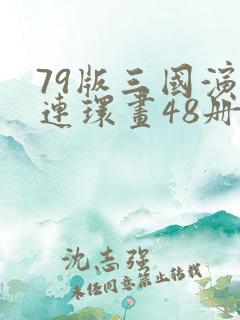 79版三國演
連環畫48册
沈志强
未经同意禁止转载